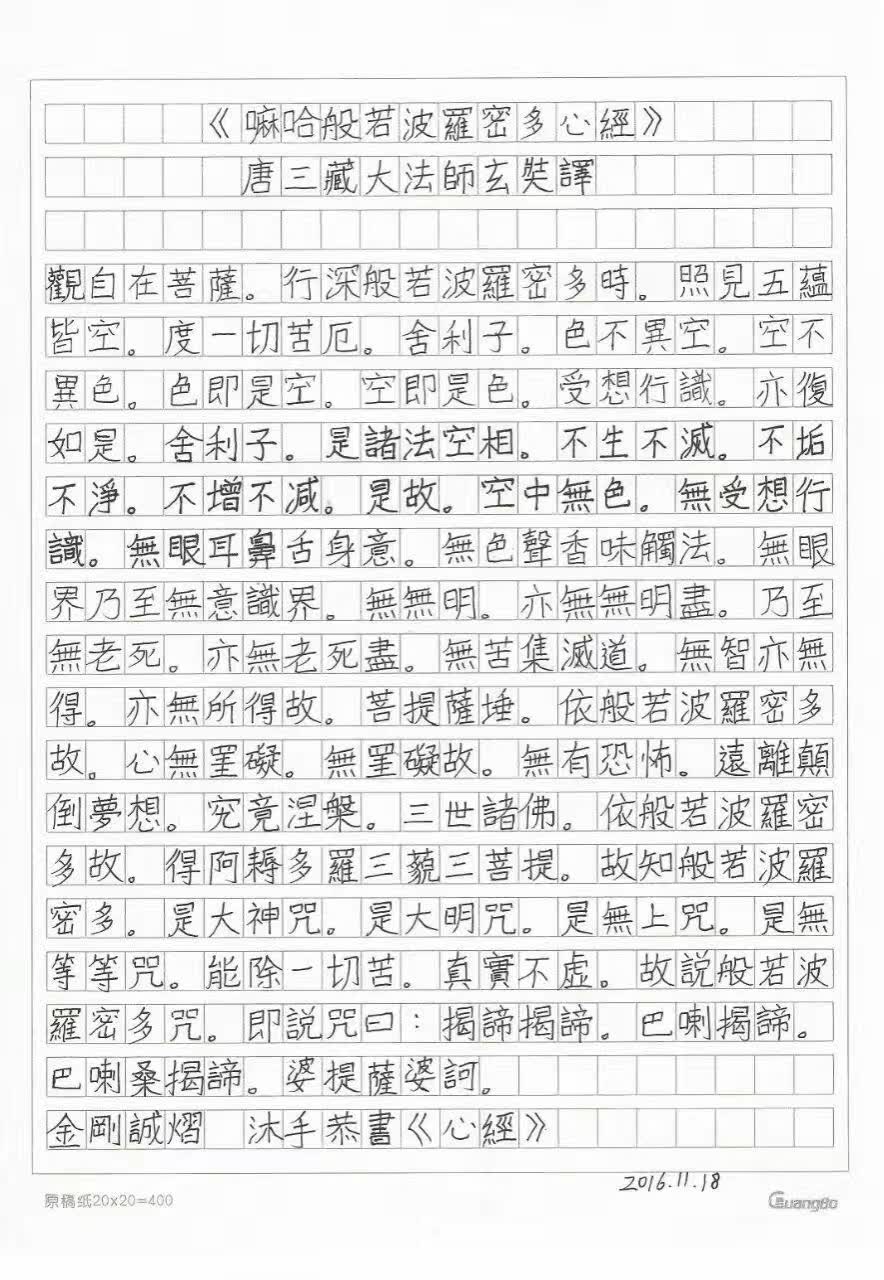 《嘛哈般若波羅密多心經》
唐三藏大法師玄奘譯
觀自在菩薩。行深般若波羅密多時。照見五蘊
皆空。度一切苦厄。舍利子。色不異空。空不
異色。色即是空。空即是色。受想行識。亦復
如是。舍利子。是諸法空相。不生不滅。不垢
不淨。不增不减。是故。空中無色。無受想行
識。無眼耳鼻舌身意。無色聲香味觸法。無眼
界乃至無意識界。無無明。亦無無明盡。乃至
無老死。亦無老死盡。無苦集滅道。無智亦無
得。亦無所得故。菩提薩埵。依般若波羅密多
故。心無罣礙。無罣礙故。無有恐怖。遠離顛
倒夢想。究竟涅槃。三世諸佛。依般若波羅密
多故。得阿耨多羅三藐三菩提。故知般若波羅
密多。是大神咒。是大明咒。是無上咒。是無
等等咒。能除一切苦。真實不虛。故説般若波
羅密多咒。即説咒曰：揭諦揭諦。巴喇揭諦。
巴喇桑揭諦。婆提薩婆訶。
金剛誠熠 沐手恭書《心經》
2016.11.18
原稿纸20x20=400 GuangBo